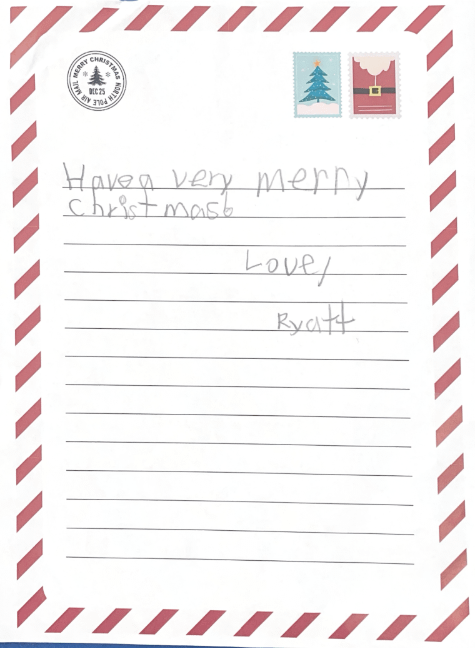 MERRY CHRISTMAS
DEC 25
NORTH POLE AIR MAIL
Have a very merry
christmas
Love,
Ryatt